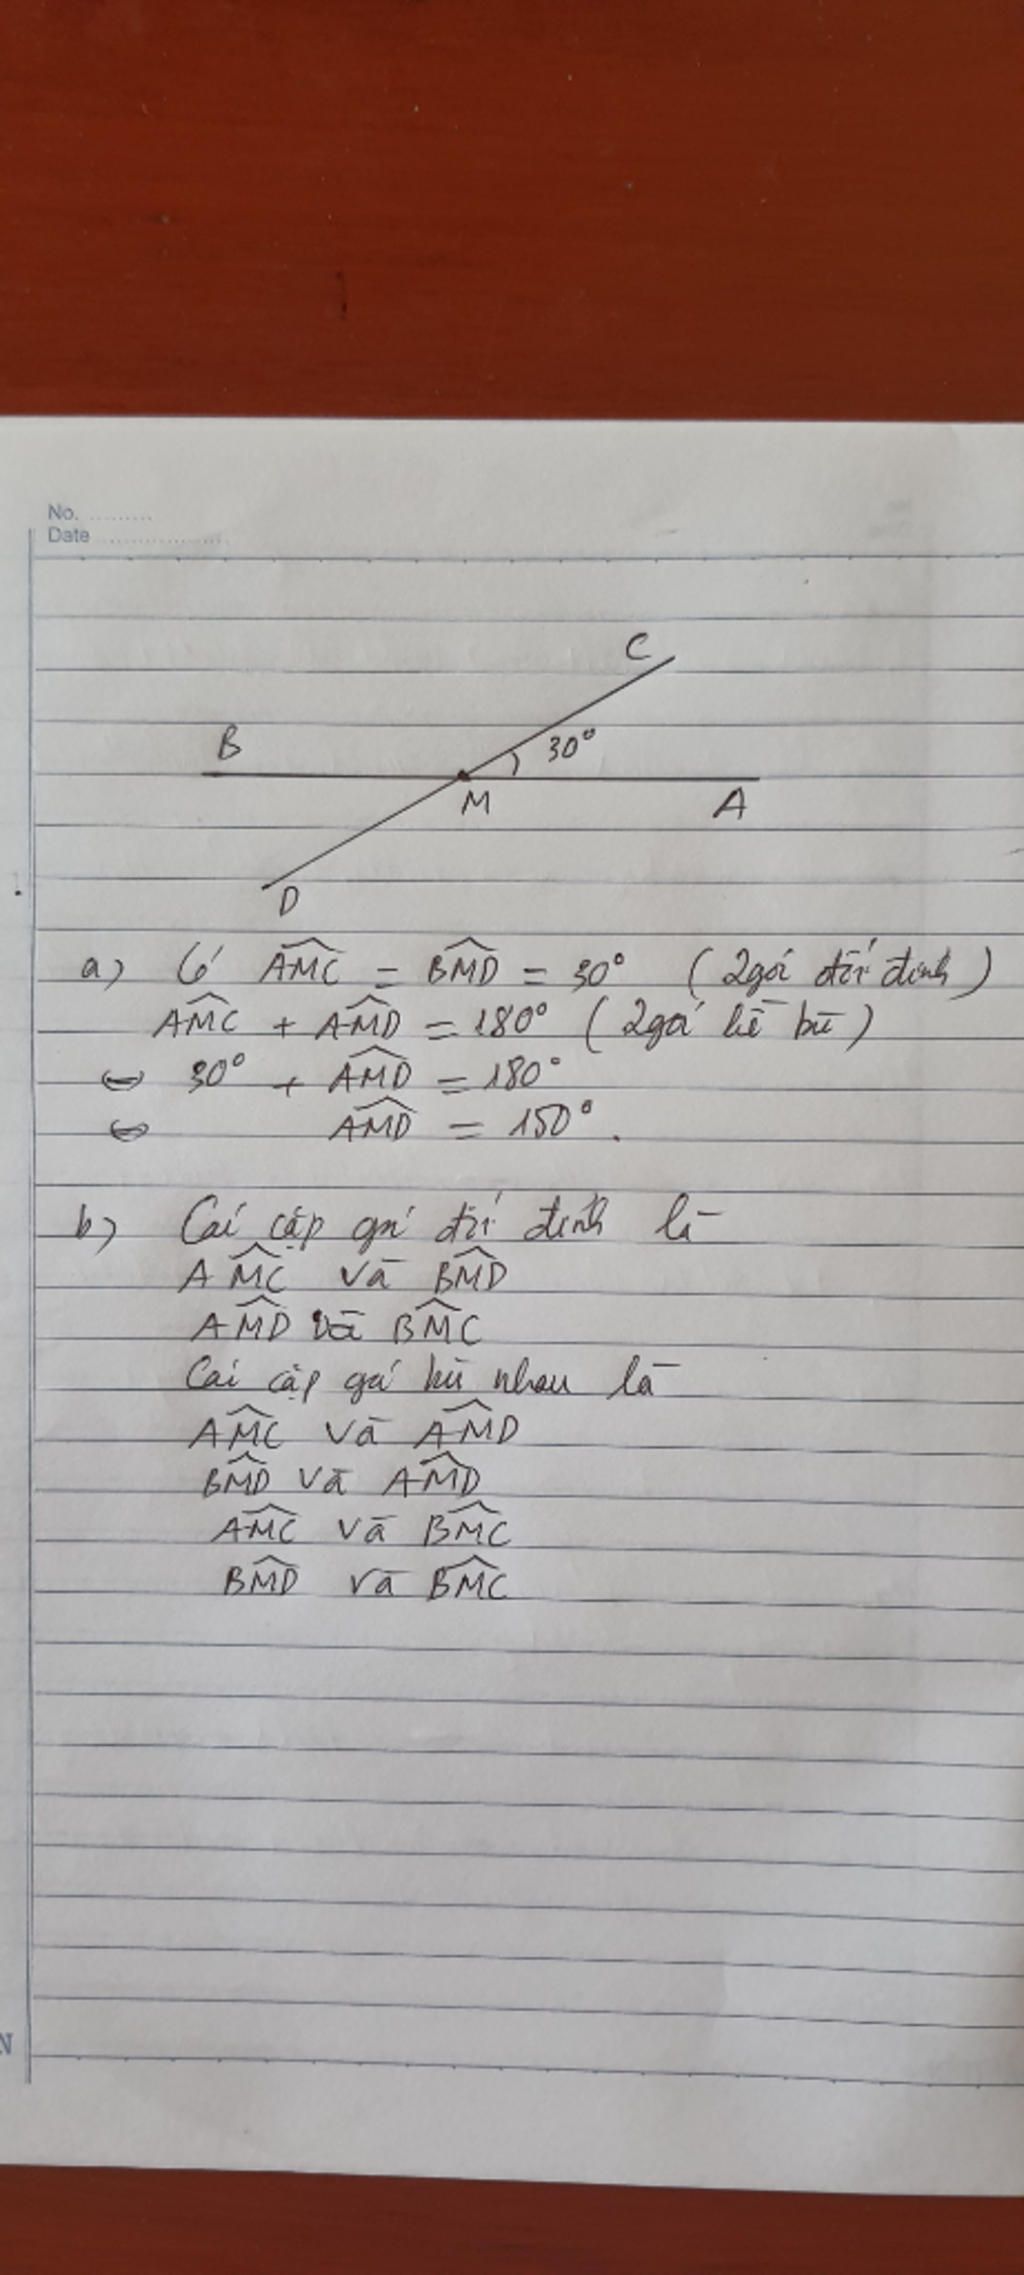 No. ..........
Date ..................
C
B
30°
M
A
D
a) Có AMC = BMD = 30° (2 góc đối đỉnh)
AMC + AMD = 180° (2 góc kề bù)
⇔ 30° + AMD = 180°
⇔ AMD = 150°.
b) Các cặp góc đối đỉnh là
AMC và BMD
AMD và BMC
Các cặp góc bù nhau là
AMC và AMD
BMD và AMD
AMC và BMC
BMD và BMC
N